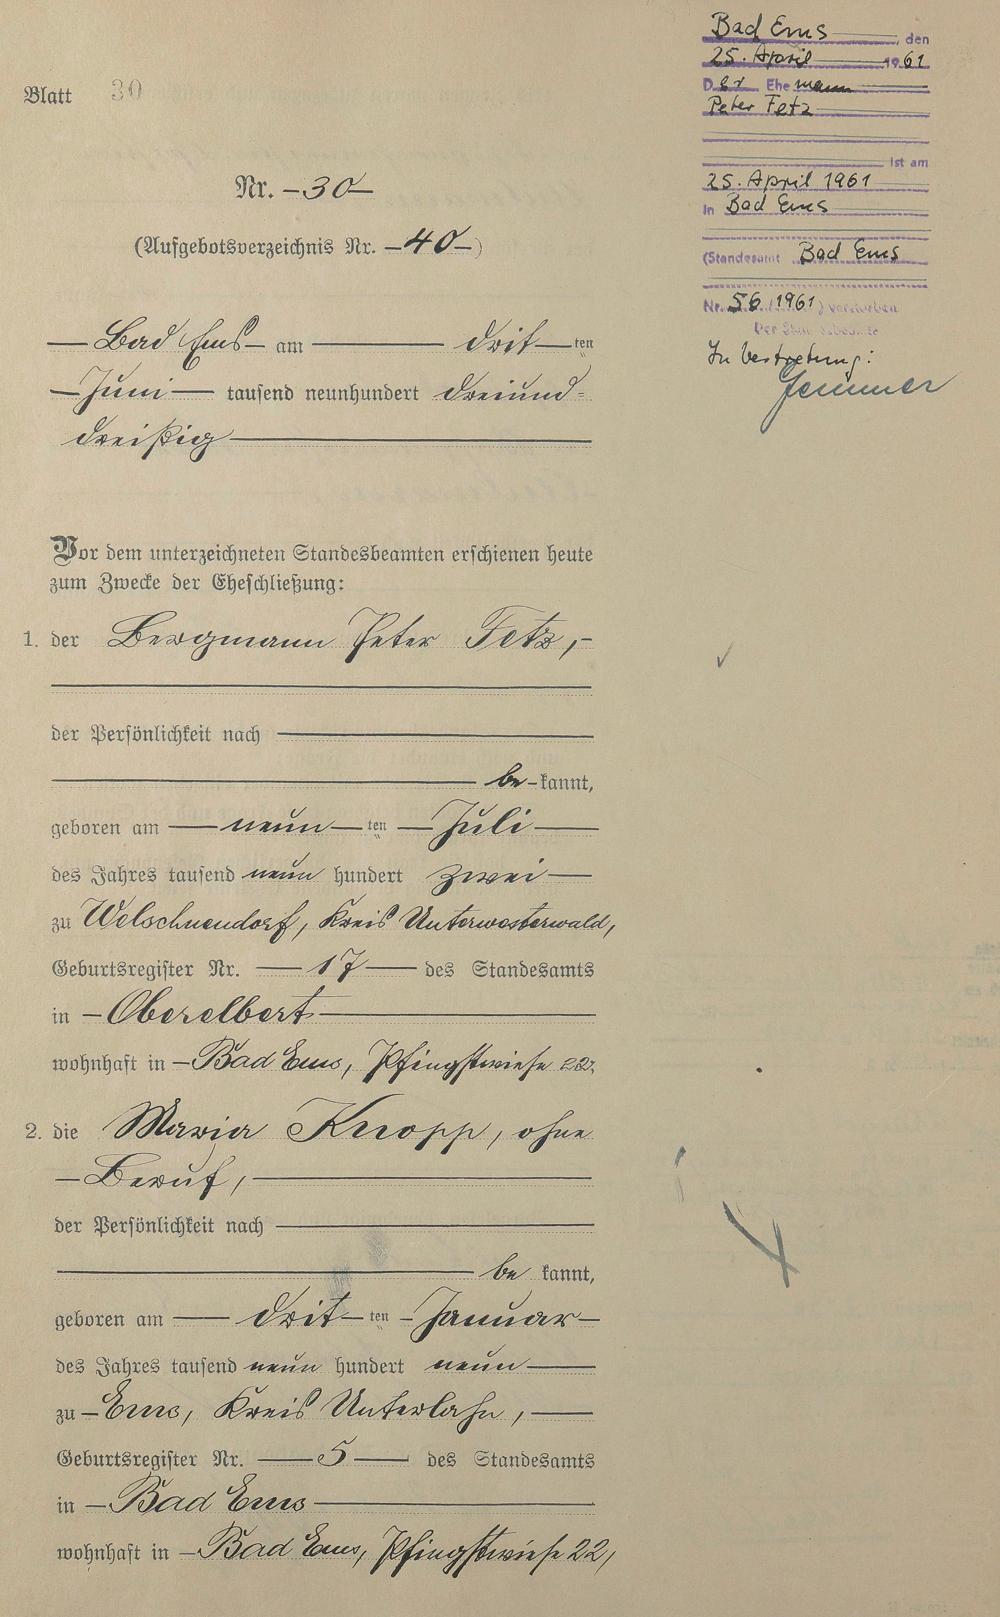 Blatt 30
Nr. 30
(Aufgebotsverzeichnis Nr. 40)
Bad Ems am drit ten
Juni tausend neunhundert dreiund=
dreißig
Vor dem unterzeichneten Standesbeamten erschienen heute
zum Zwecke der Eheschließung:
1. der Bergmann Peter Fetz,
der Persönlichkeit nach
be kannt,
geboren am neun ten Juli
des Jahres tausend neun hundert zwei
zu Welschneudorf, Kreis Unterwesterwald,
Geburtsregister Nr. 17 des Standesamts
in Oberelbert
wohnhaft in Bad Ems, Pfingstwiese 22.
2. die Maria Knopp, ohne
Beruf,
der Persönlichkeit nach
be kannt,
geboren am drit ten Januar
des Jahres tausend neun hundert neun
zu Ems, Kreis Unterlahn,
Geburtsregister Nr. 5 des Standesamts
in Bad Ems
wohnhaft in Bad Ems, Pfingstwiese 22,
Bad Ems, den
25. April 1961
Der Ehemann
Peter Fetz
ist am
25. April 1961
in Bad Ems
(Standesamt Bad Ems
Nr. 56/1961) verstorben
Der Standesbeamte
In Vertretung: